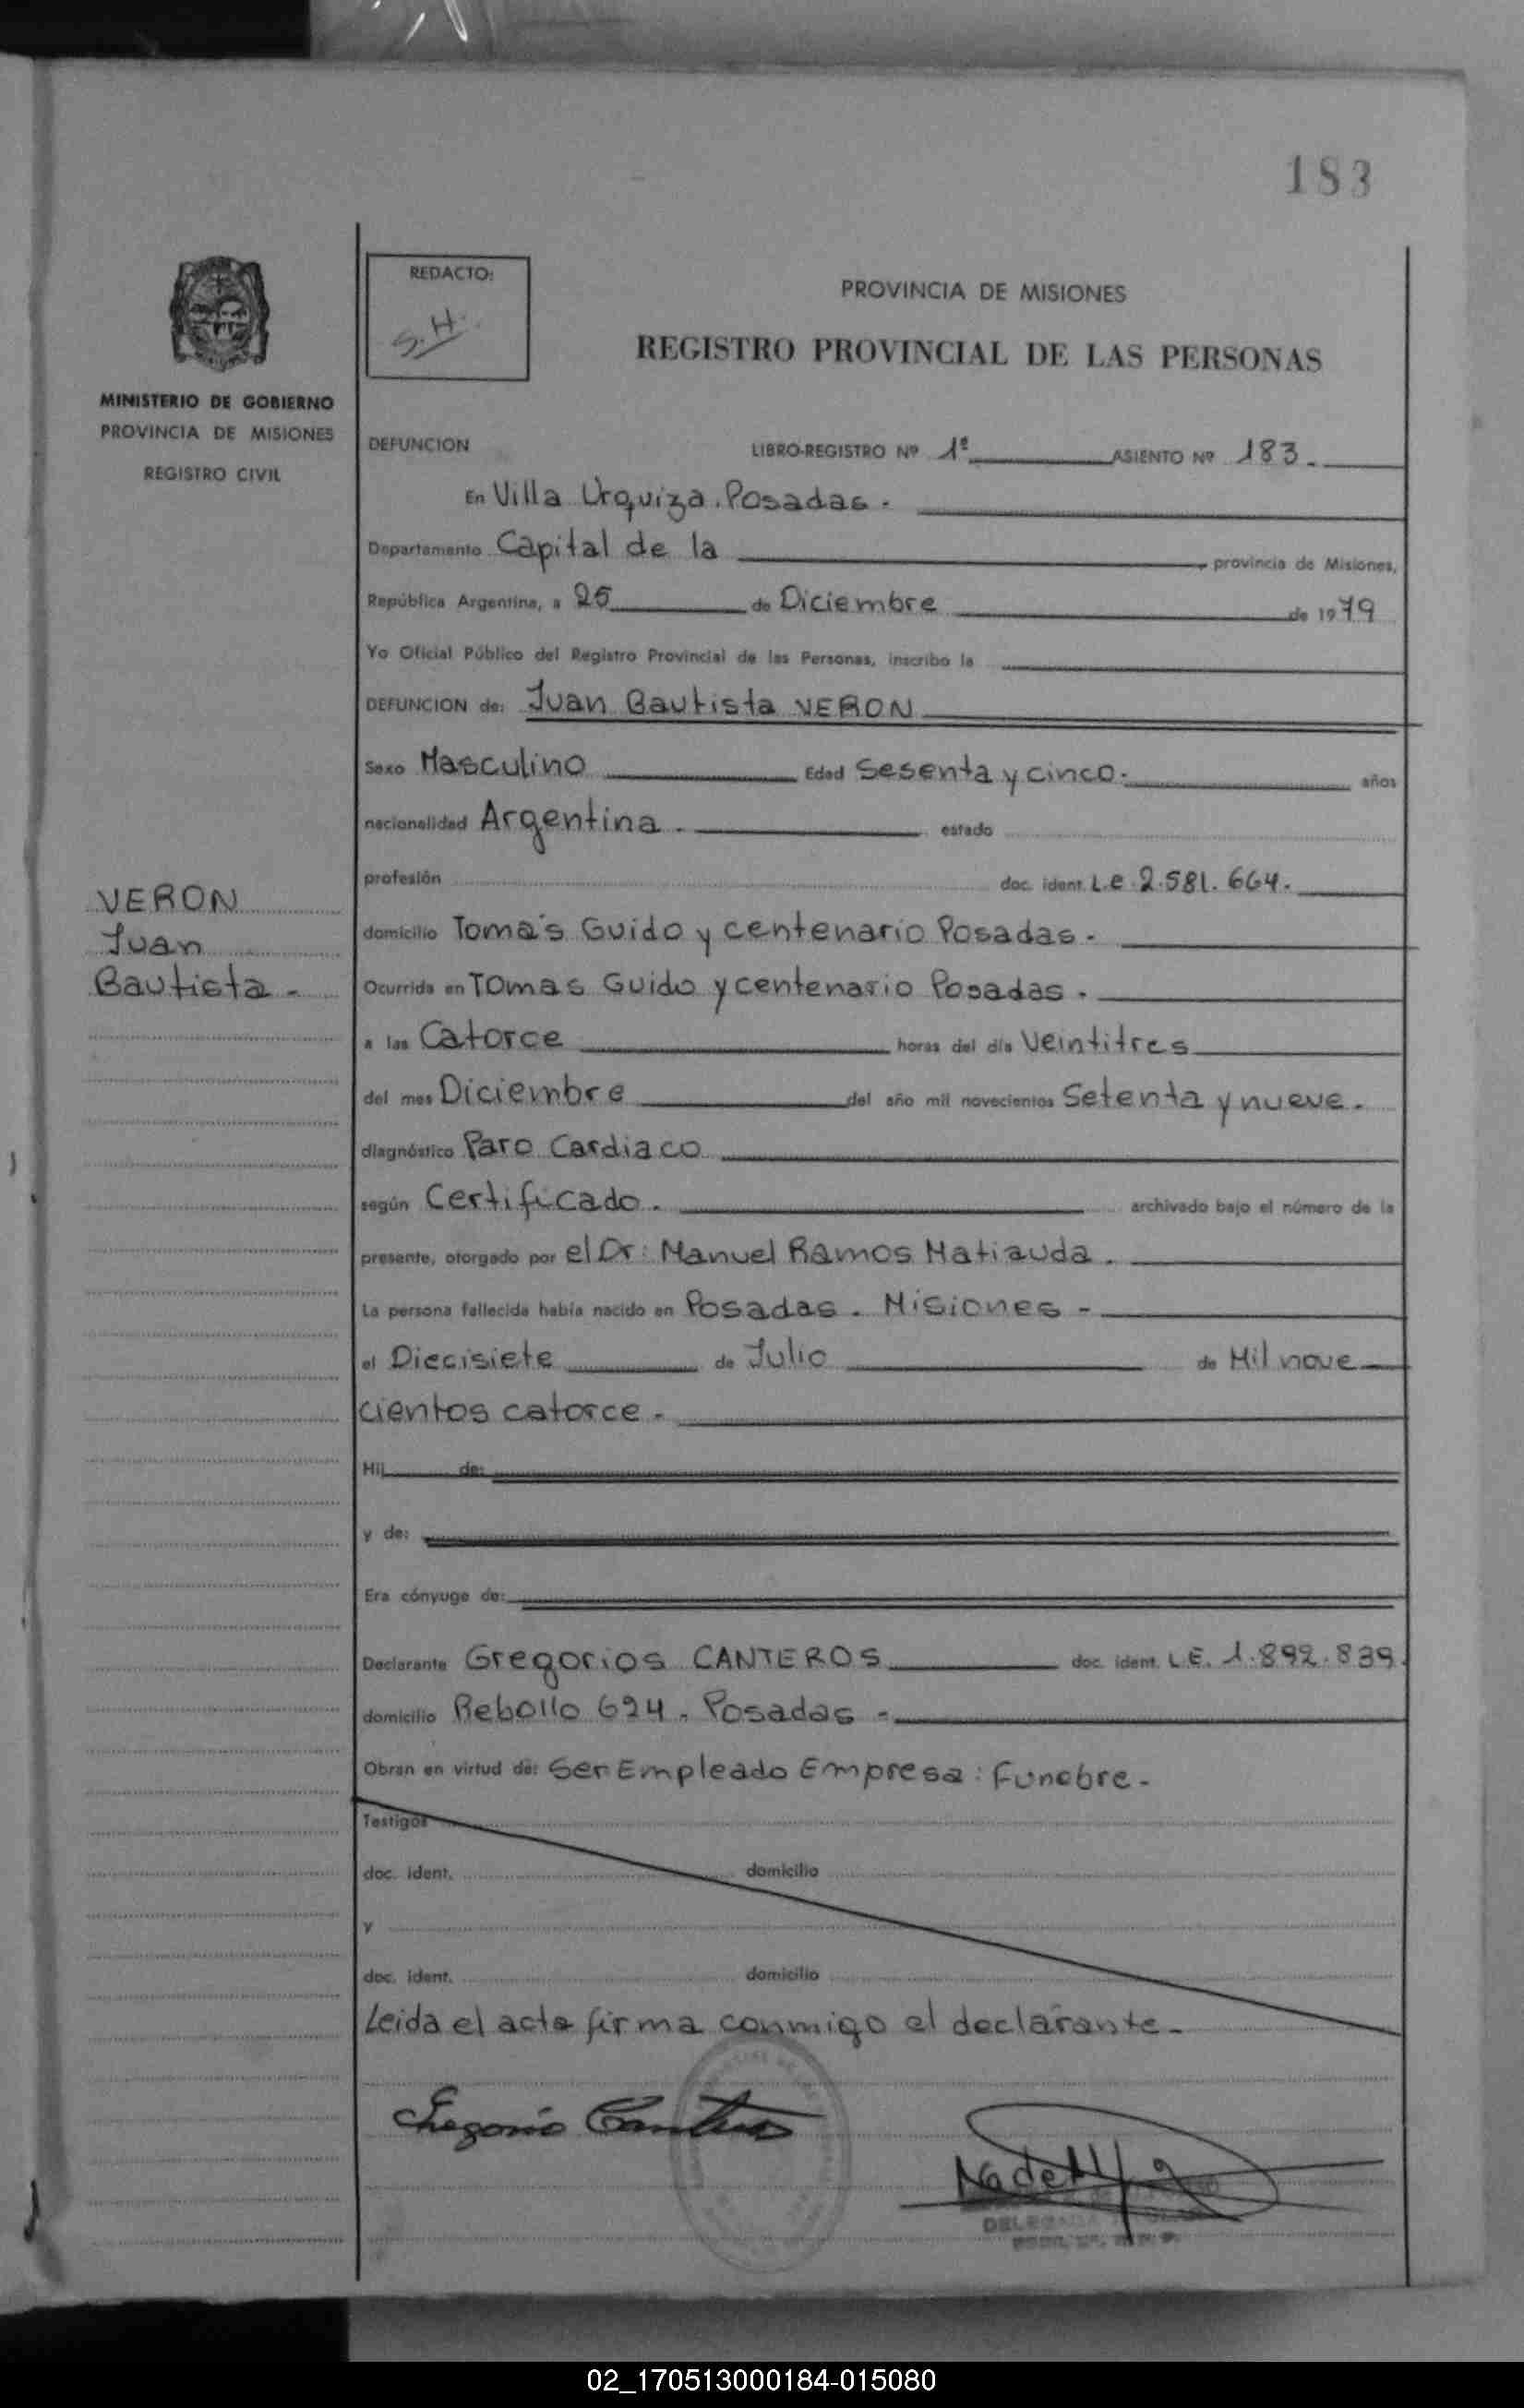 183
REDACTO:
S.H.
PROVINCIA DE MISIONES
REGISTRO PROVINCIAL DE LAS PERSONAS
MINISTERIO DE GOBIERNO
PROVINCIA DE MISIONES
REGISTRO CIVIL
DEFUNCION LIBRO-REGISTRO Nº 1º ASIENTO Nº 183.
En Villa Urquiza. Posadas.
Departamento Capital de la provincia de Misiones,
República Argentina, a 25 de Diciembre de 1979
Yo Oficial Público del Registro Provincial de las Personas, inscribo la
DEFUNCION de: Juan Bautista VERON
Sexo Masculino Edad Sesenta y cinco. años
nacionalidad Argentina. estado
profesión doc. ident. L.e. 2.581.664.
VERON
Juan
Bautista -
domicilio Tomás Guido y centenario Posadas.
Ocurrida en Tomas Guido y centenario Posadas.
a las Catorce horas del día Veintitres
del mes Diciembre del año mil novecientos Setenta y nueve.
diagnóstico Paro Cardiaco
según Certificado. archivado bajo el número de la
presente, otorgado por el Dr: Manuel Ramos Matiauda.
La persona fallecida había nacido en Posadas. Misiones -
el Diecisiete de Julio de Mil nove
cientos catorce.
Hij de:
y de:
Era cónyuge de:
Declarante Gregorios CANTEROS doc. ident. L.E. 1.892.839.
domicilio Rebollo 624. Posadas -
Obran en virtud de: Ser Empleado Empresa: Funebre.
Testigos
doc. ident. domicilio
y
doc. ident. domicilio
Leida el acta firma conmigo el declarante.
Gregorio Canteros
02_170513000184-015080